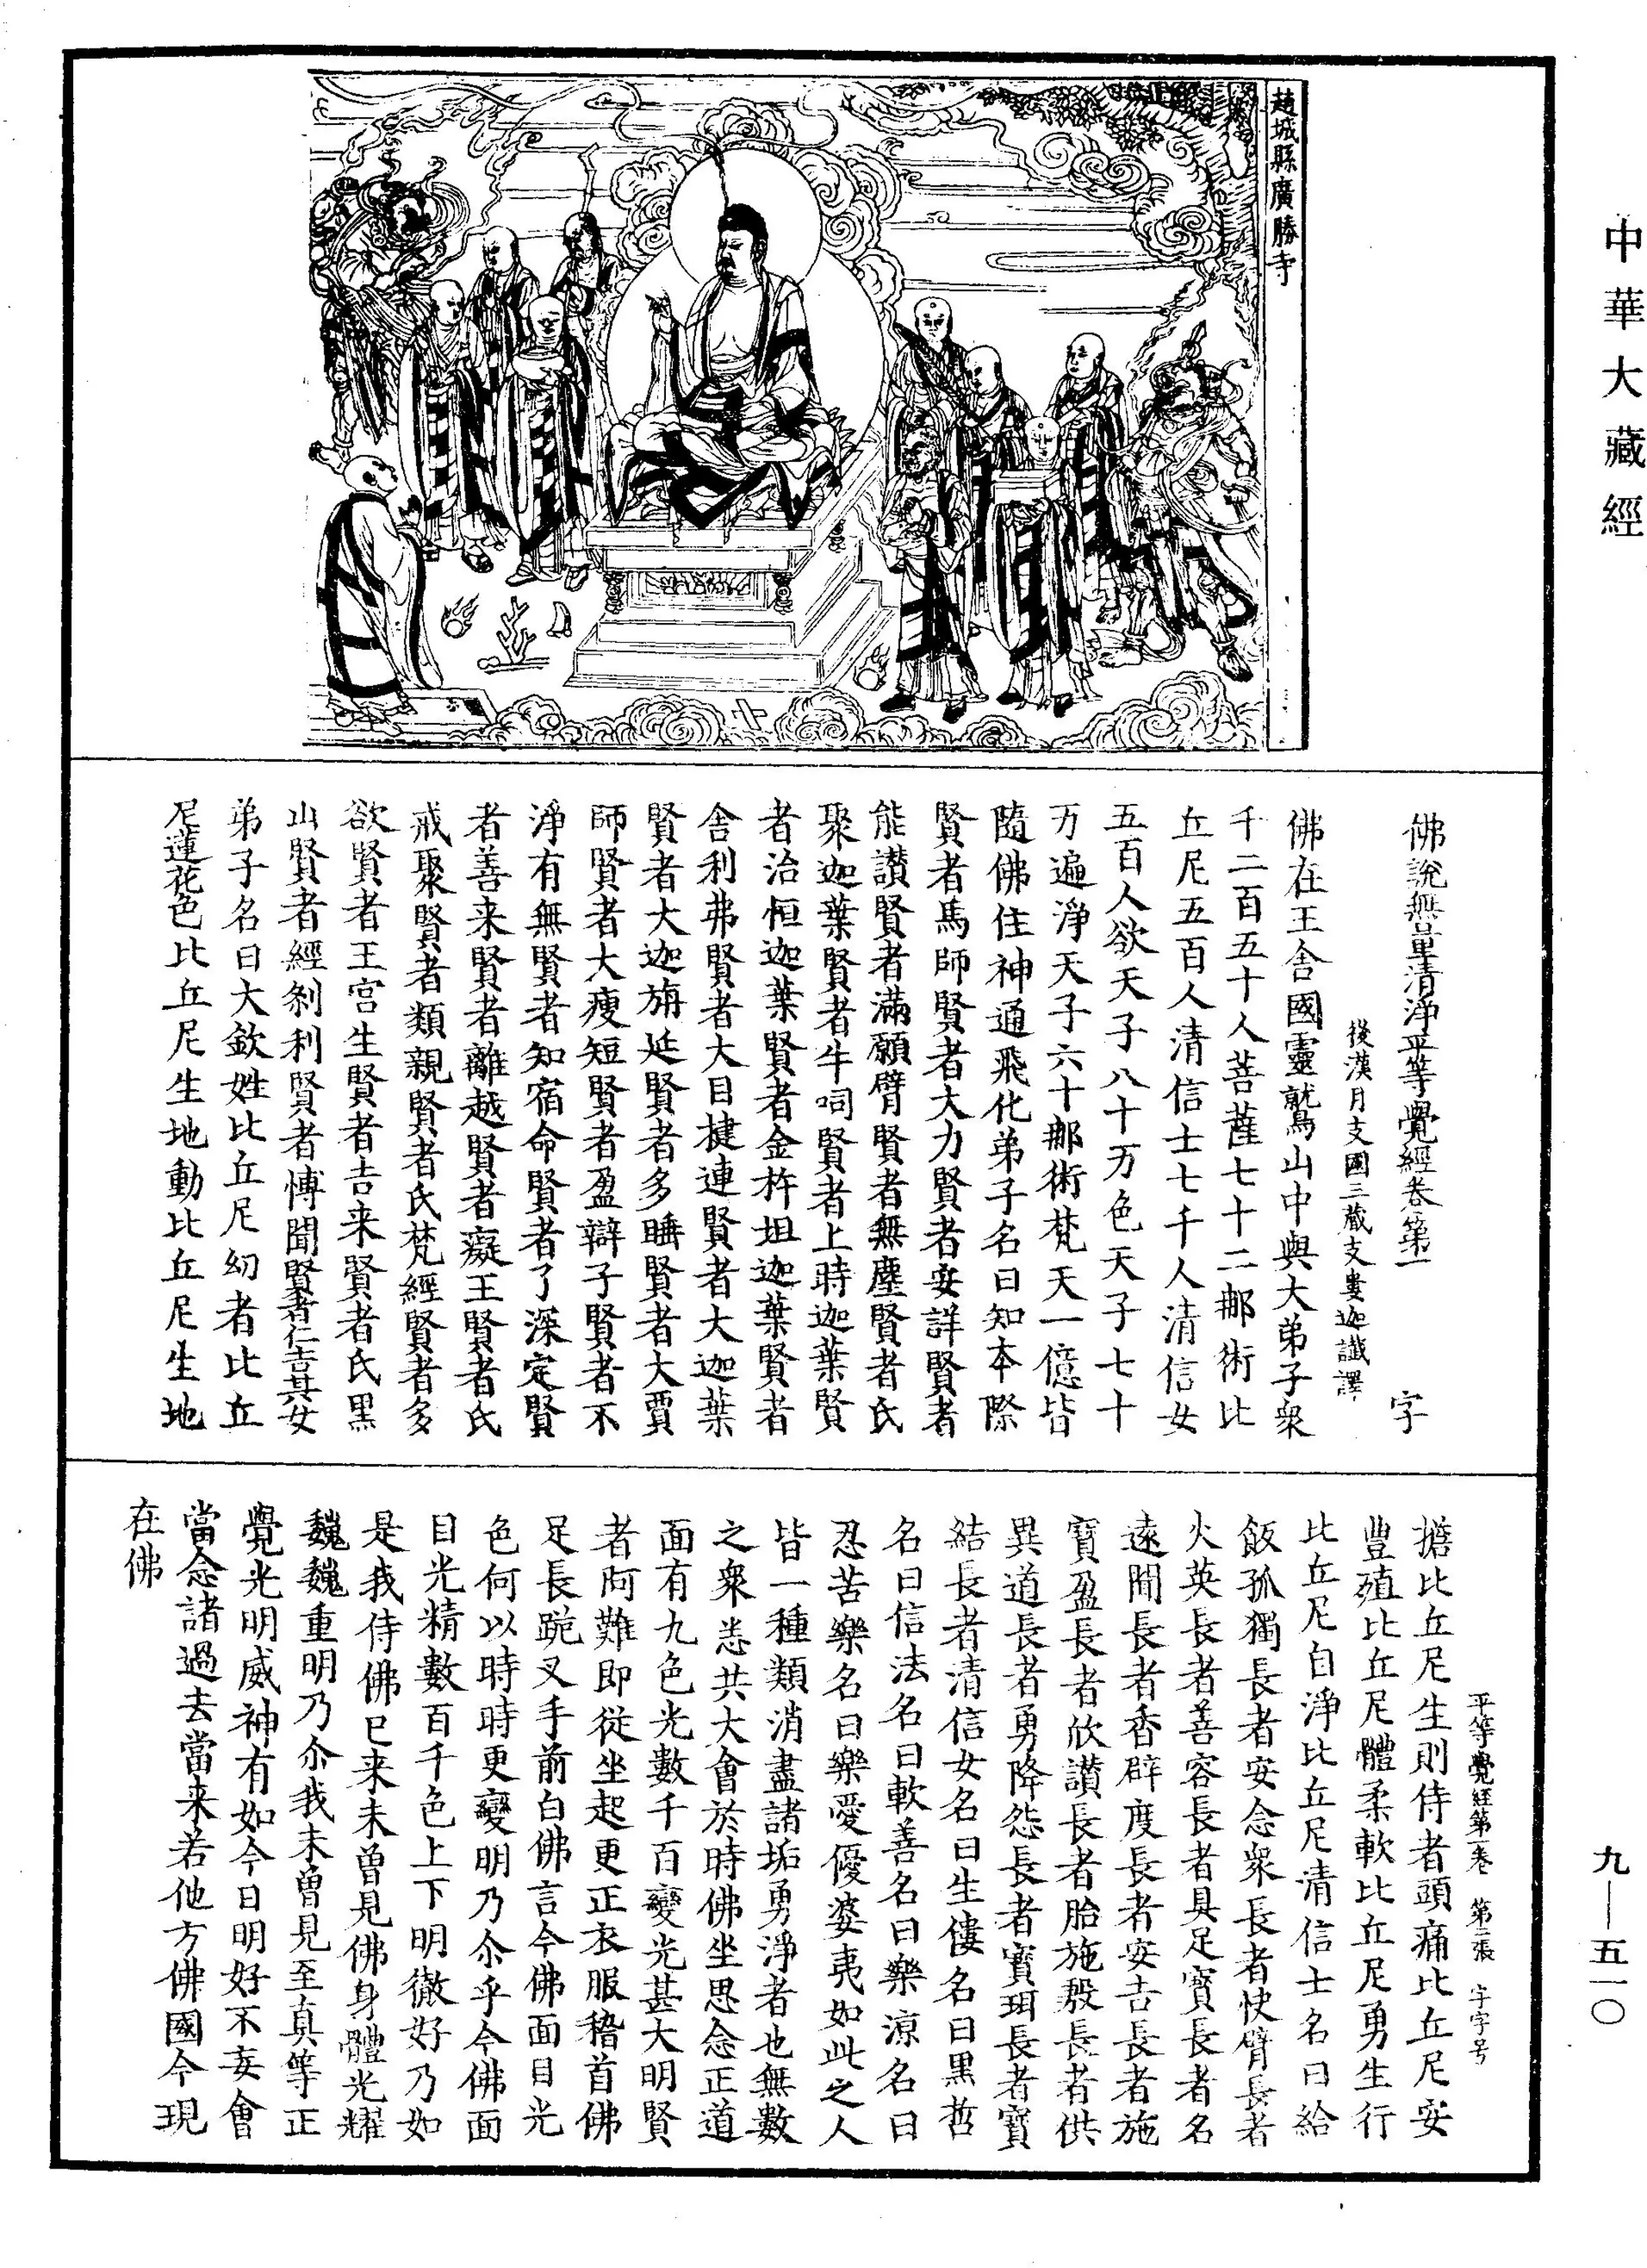 中華大藏經
趙城縣廣勝寺
佛說無量清淨平等覺經卷第一 字
後漢月支國三藏支婁迦讖譯
佛在王舍國靈鷲山中與大弟子衆
千二百五十人菩薩七十二那術比
丘尼五百人清信士七千人清信女
五百人欲天子八十万色天子七十
万遍淨天子六十那術梵天一億皆
隨佛住神通飛化弟子名曰知本際
賢者馬師賢者大力賢者安詳賢者
能讃賢者滿願臂賢者無塵賢者氏
聚迦葉賢者牛呞賢者上時迦葉賢
者治恒迦葉賢者金杵坦迦葉賢者
舍利弗賢者大目揵連賢者大迦葉
賢者大迦旃延賢者多睡賢者大賈
師賢者大瘦短賢者盈辯子賢者不
淨有無賢者知宿命賢者了深定賢
者善来賢者離越賢者癡王賢者氏
戒聚賢者類親賢者氏梵經賢者多
欲賢者王宮生賢者告来賢者氏黑
山賢者經剎利賢者博聞賢者仁吉其女
弟子名曰大欽姓比丘尼幼者比丘
尼蓮花色比丘尼生地動比丘尼生地
平等覺經第一卷 第二張 字字号
擔比丘尼生則侍者頭痛比丘尼安
豐殖比丘尼體柔軟比丘尼勇生行
比丘尼自淨比丘尼清信士名曰給
飯孤獨長者安念衆長者快臂長者
火英長者善容長者具足寶長者名
遠聞長者香辟度長者安吉長者施
寶盈長者欣讃長者胎施殷長者供
異道長者勇降怨長者寶珥長者寶
結長者清信女名曰生僂名曰黑哲
名曰信法名曰軟善名曰樂涼名曰
忍苦樂名曰樂愛優婆夷如此之人
皆一種類消盡諸垢勇淨者也無數
之衆悉共大會於時佛坐思念正道
面有九色光數千百變光甚大明賢
者阿難即從坐起更正衣服稽首佛
足長跪叉手前白佛言今佛面目光
色何以時時更變明乃尒乎今佛面
目光精數百千色上下明徹好乃如
是我侍佛已来未曾見佛身體光耀
巍巍重明乃尒我未曾見至真等正
覺光明威神有如今日明好不妄會
當念諸過去當来若他方佛國今現
在佛
九—五一〇